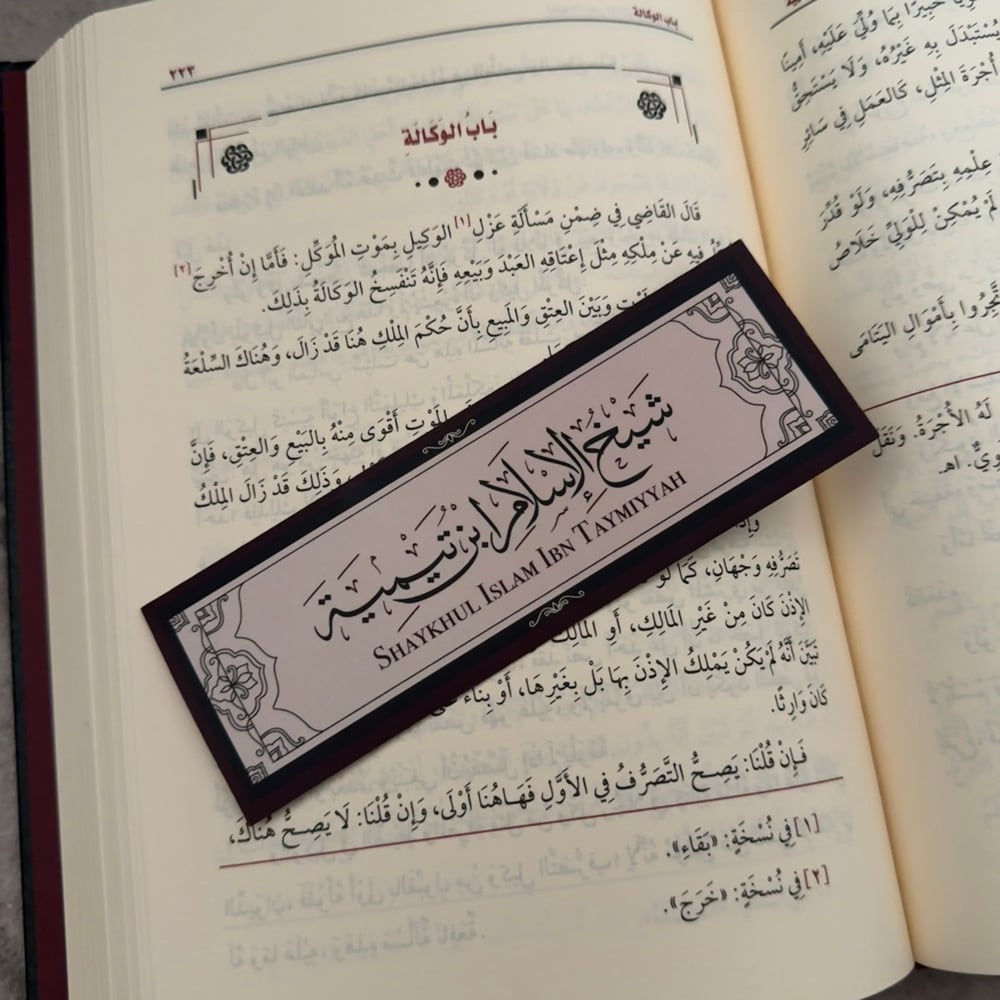 باب الوكالة
٢٢٣
بَابُ الوَكَالَةِ
قَالَ القَاضِي فِي ضِمْنِ مَسْأَلَةِ عَزْلِ[١] الوَكِيلِ بِمَوْتِ المُوَكِّلِ: فَأَمَّا إِنْ أُخْرِجَ[٢]
فِيهِ عَنْ مِلْكِهِ مِثْلَ إِعْتَاقِهِ العَبْدَ وَبَيْعِهِ فَإِنَّهُ تَنْفَسِخُ الوَكَالَةُ بِذَلِكَ.
وَبَيْنَ العِتْقِ وَالمَبِيعِ بِأَنَّ حُكْمَ المِلْكِ هُنَا قَدْ زَالَ، وَهُنَاكَ السِّلْعَةُ
أَقْوَى مِنْهُ بِالبَيْعِ وَالعِتْقِ، فَإِنَّ
وَذَلِكَ قَدْ زَالَ المِلْكُ
شيخ الإسلام ابن تيمية
SHAYKHUL ISLAM IBN TAYMIYYAH
وَجْهَانِ، كَمَا لَوْ
الإِذْنَ كَانَ مِنْ غَيْرِ المَالِكِ، أَوِ المَالِكُ
تَبَيَّنَ أَنَّهُ لَمْ يَكُنْ يَمْلِكُ الإِذْنَ بِهَا بَلْ بِغَيْرِهَا، أَوْ بِنَاءً
كَانَ وَارِثًا.
فَإِنْ قُلْنَا: يَصِحُّ التَّصَرُّفُ فِي الأَوَّلِ فَهَاهُنَا أَوْلَى، وَإِنْ قُلْنَا: لَا يَصِحُّ هُنَاكَ،
[١] فِي نُسْخَةٍ: «بَقَاءِ».
[٢] فِي نُسْخَةٍ: «خَرَجَ».
خَبِيرًا بِمَا وُلِّيَ عَلَيْهِ، أَمِينًا
يُسْتَبْدَلُ بِهِ غَيْرُهُ، وَلَا يَسْتَحِقُّ
أُجْرَةَ المِثْلِ، كَالعَمَلِ فِي سَائِرِ
عِلْمِهِ بِتَصَرُّفِهِ، وَلَوْ قُدِّرَ
لَمْ يُمْكِنْ لِلْوَلِيِّ خَلَاصُ
اتَّجِرُوا بِأَمْوَالِ اليَتَامَى
لَهُ الأُجْرَةُ. وَنَقَلَ
اهـ.